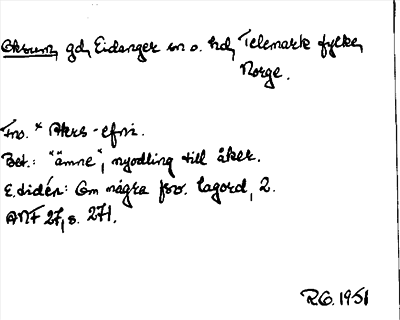 Åkrum, gd, Eidanger sn o. hd, Telemark fylke,
Norge.
Fno. * Akrs-efni.
Bet.: "ämne", nyodling till åker.
E. Lidén: Om några fno. lagord, 2.
ANF 27, s. 271.
R.G. 1951